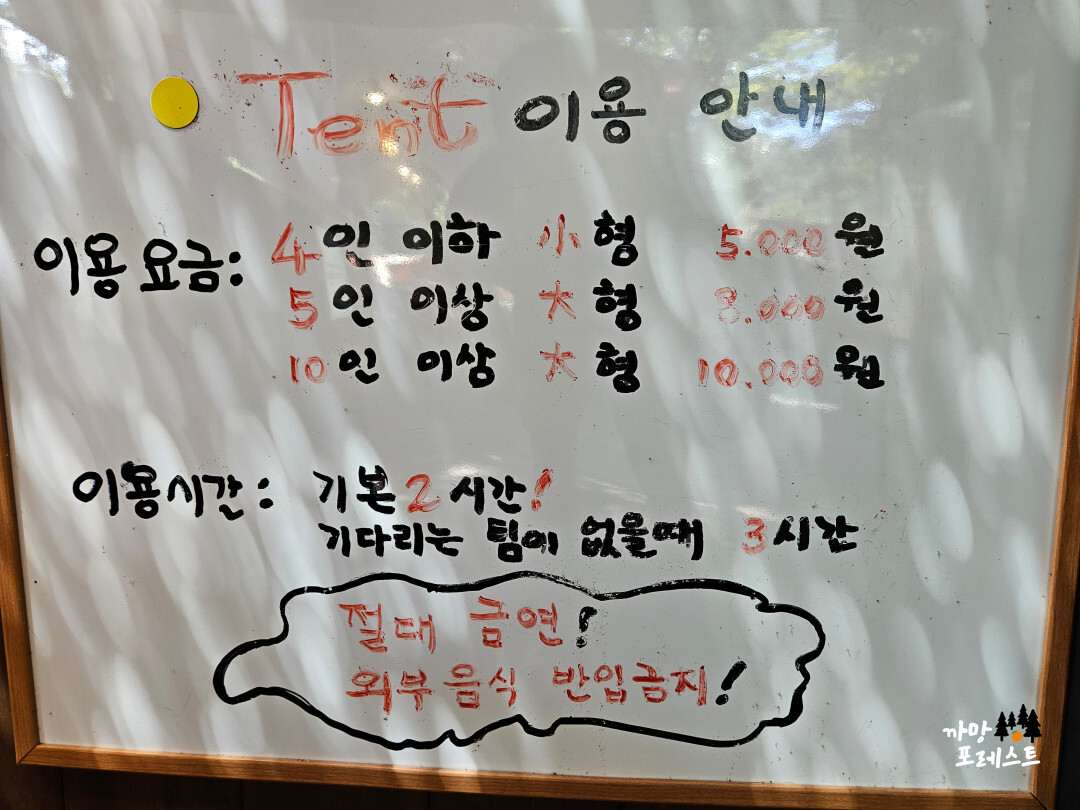 Tent 이용 안내
이용요금: 4인 이하 小형 5.000원
5인 이상 大형 8.000원
10인 이상 大형 10.000원
이용시간: 기본 2시간!
기다리는 팀이 없을때 3시간
절대 금연!
외부음식 반입금지!
까망
포레스트